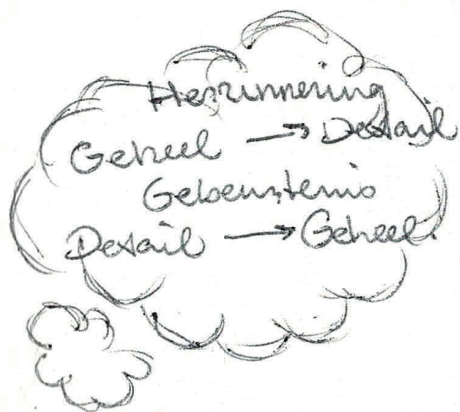 Herinnering
Geheel → Detail
Gebeurtenis
Detail → Geheel.